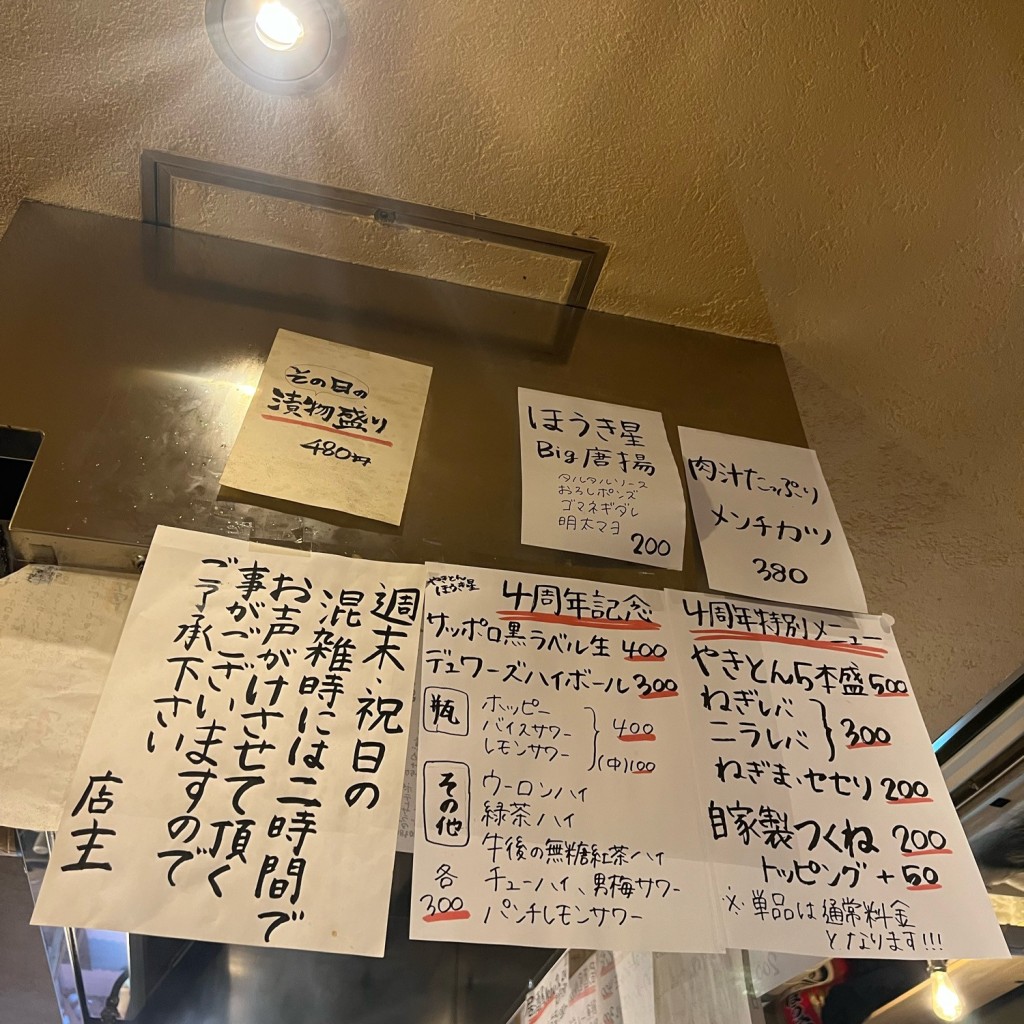 その日の
漬物盛り
480円
ほうき星
Big唐揚
タルタルソース
おろしポンズ
ゴマネギダレ
明太マヨ
200
肉汁たっぷり
メンチカツ
380
週末・祝日の
混雑時には二時間で
お声がけさせて頂く
事がございますので
ご了承下さい
店主
やきとん
ほうき星
4周年記念
サッポロ黒ラベル生 400
デュワーズハイボール 300
瓶
ホッピー
バイスサワー
レモンサワー
400
(中)100
その他
ウーロンハイ
緑茶ハイ
午後の無糖紅茶ハイ
チューハイ、男梅サワー
パンチレモンサワー
各
300
4周年特別メニュー
やきとん5本盛 500
ねぎレバ
ニラレバ
300
ねぎま・セセリ 200
自家製つくね 200
トッピング +50
※単品は通常料金
となります!!!